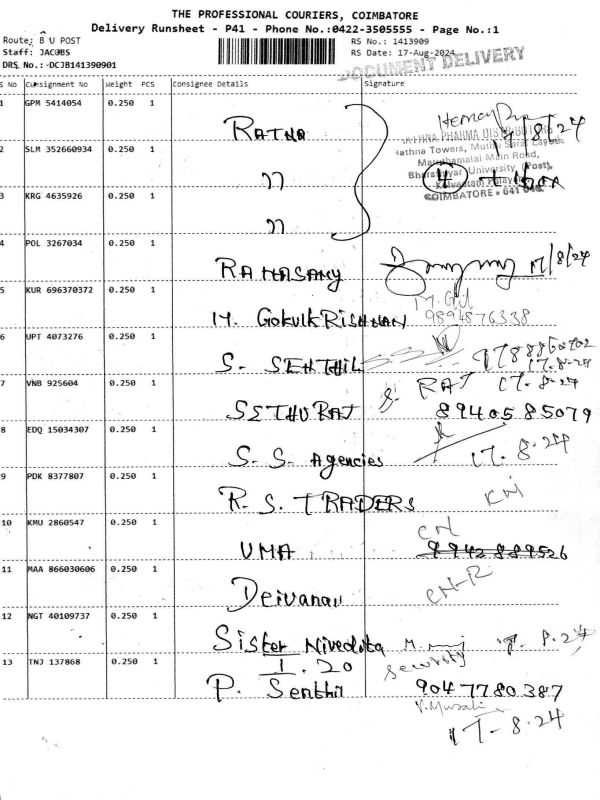 THE PROFESSIONAL COURIERS, COIMBATORE
Delivery Runsheet - P41 - Phone No.:0422-3505555 - Page No.:1
Route: B U POST
RS No.: 1413909
Staff: JACOBS
RS Date: 17-Aug-2024
DRS. No.:-DCJB141390901
DOCUMENT DELIVERY
S No Consignment No Weight PCS Consignee Details Signature
1 GPM 5414054 0.250 1 RATHA
17/8/24
RATHNA PHARMA DISTRIBUTORS
Rathna Towers, Muthu Sarai Layout
Maruthamalai Main Road,
Bharathiyar University (Post),
COIMBATORE - 641 046.
2 SLM 352660934 0.250 1 "
4
3 KRG 4635926 0.250 1 "
4 POL 3267034 0.250 1 RAMASAMY 17/8/24
5 KUR 696370372 0.250 1 M. GOKULKRISHNAN
9894876338
6 UPT 4073276 0.250 1 S. SENTHIL
17.8.24
7 VNB 925604 0.250 1 SETHURAJ
S. RAJ 17.8.24
89405 85079
8 EDQ 15034307 0.250 1 S. S. Agencies 17.8.24
9 PDK 8377807 0.250 1 R. S. TRADERS
10 KMU 2860547 0.250 1 UMA
11 MAA 866030606 0.250 1 Deivanai
12 NGT 40109737 0.250 1 Sister Nivedita
1.20
Security
13 TNJ 137868 0.250 1 P. Senthil 9047780387
V. Murali
17-8-24